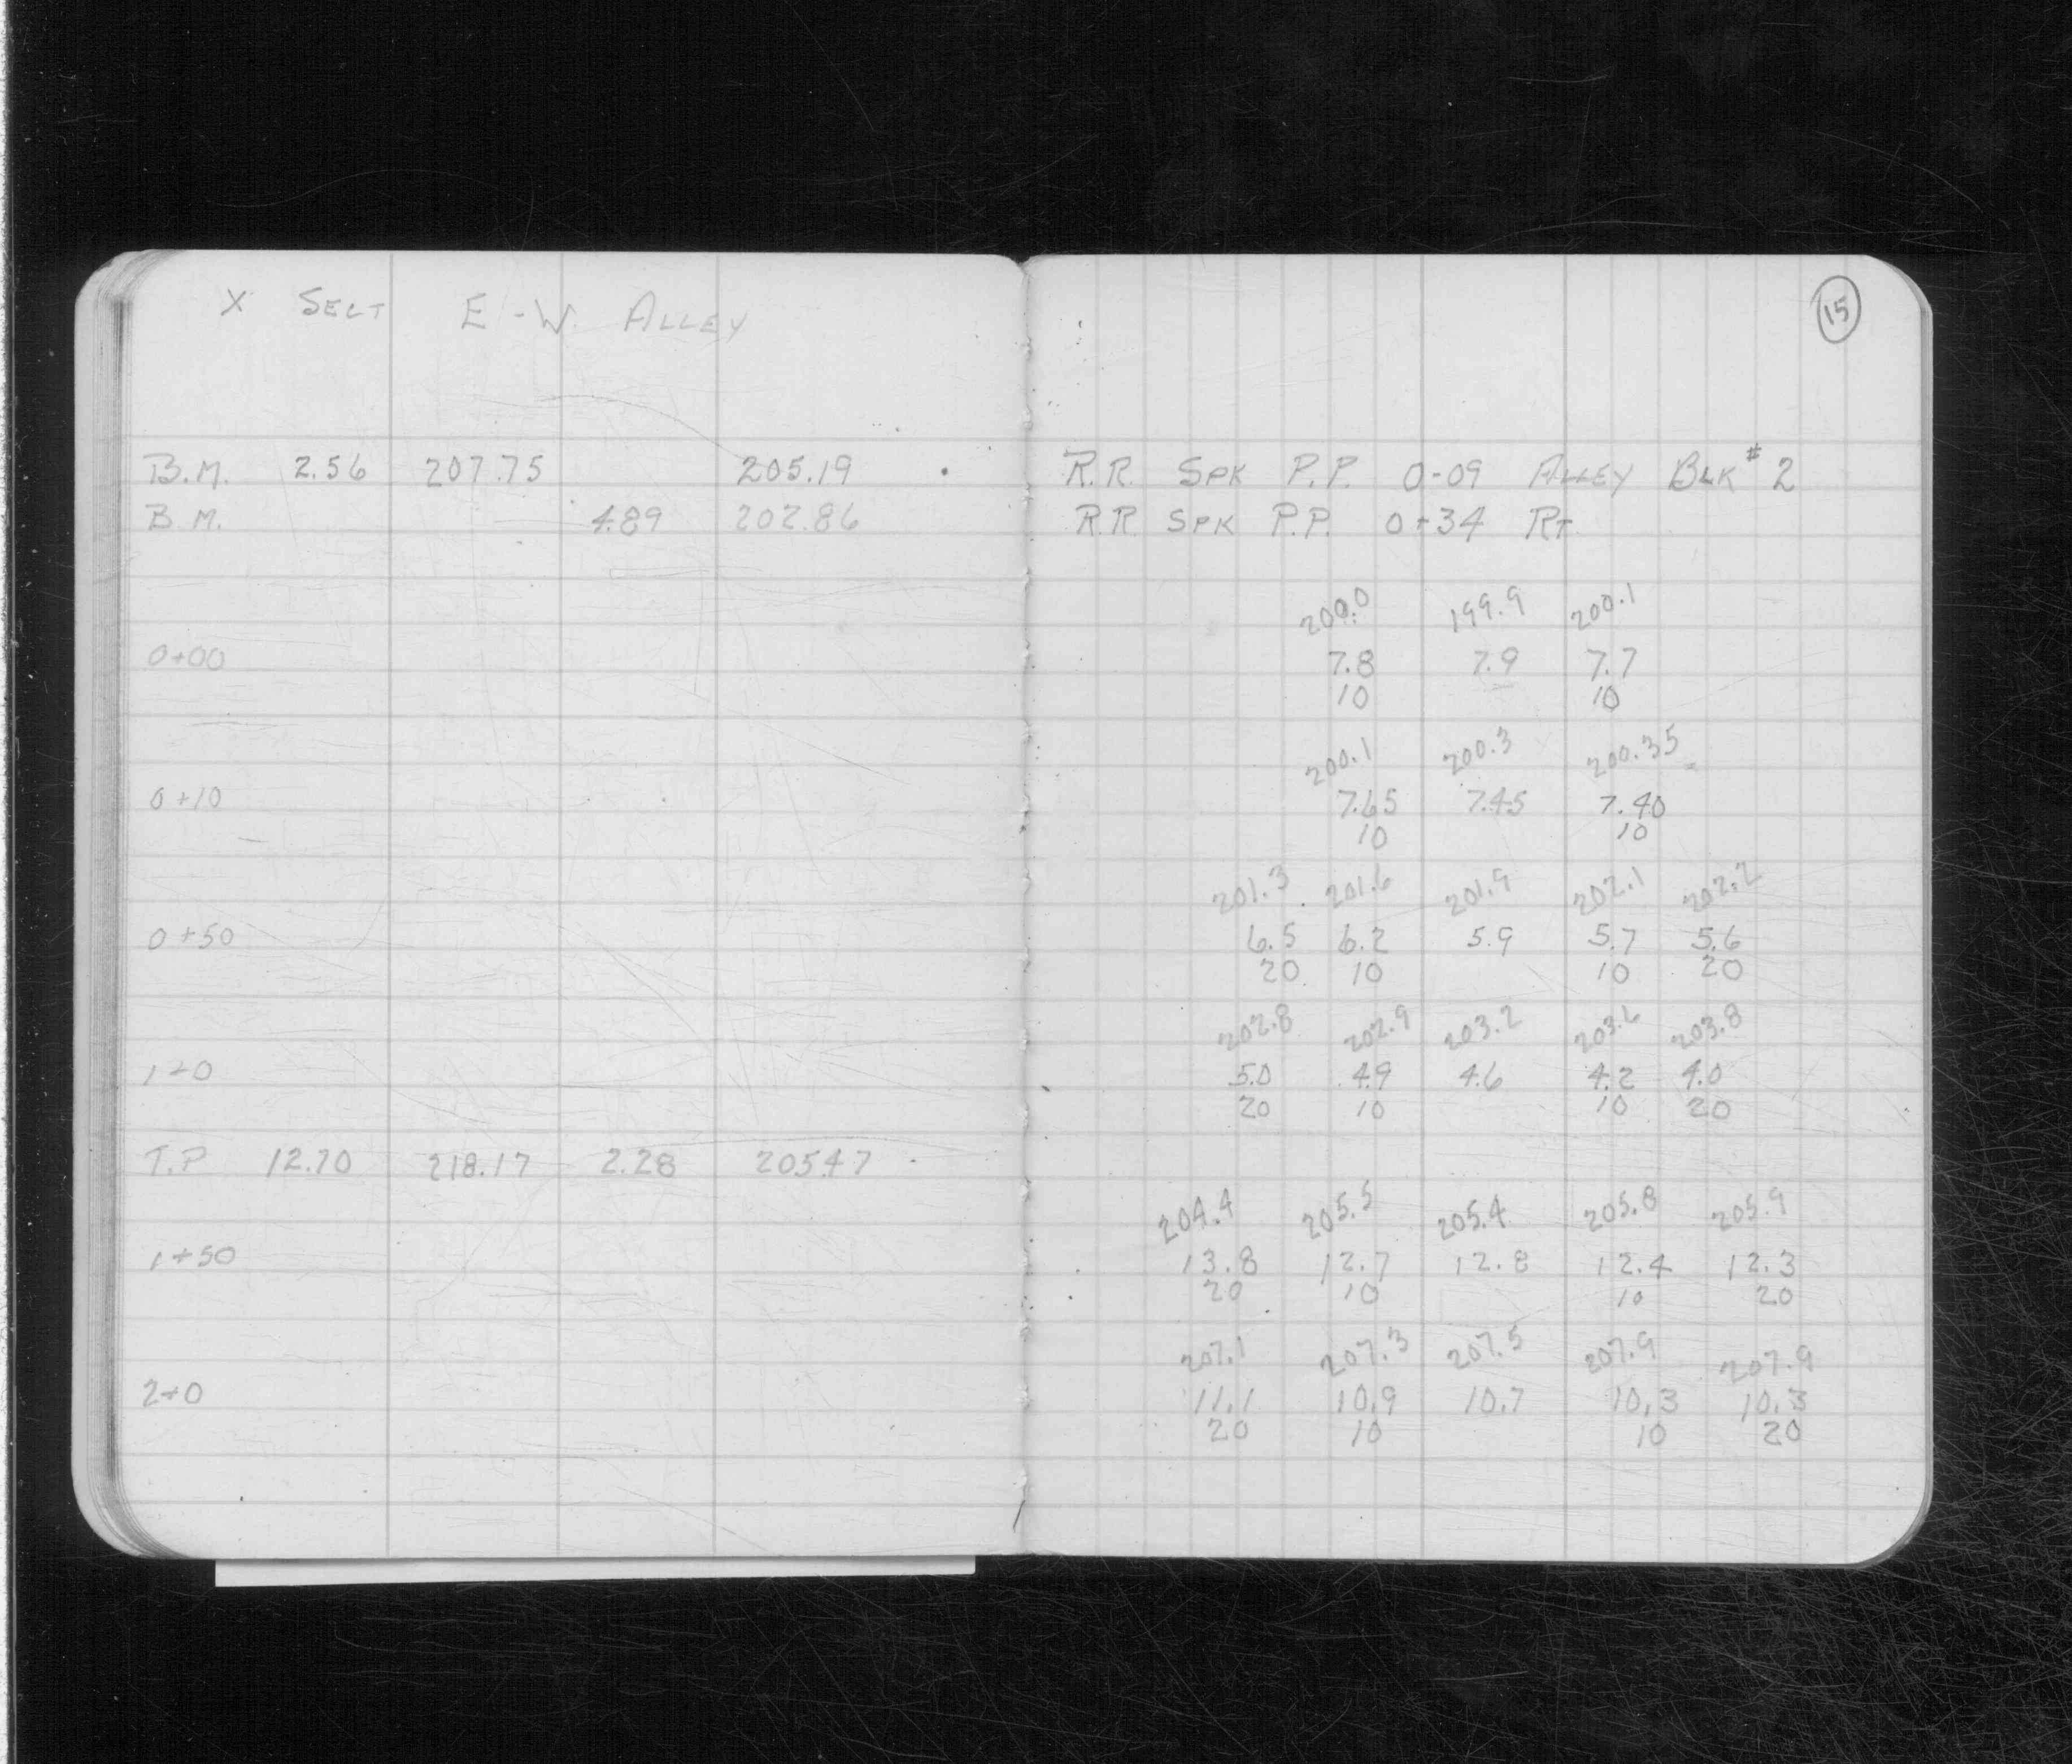 X SECT E-W. ALLEY
15
B.M. 2.56 207.75 205.19 R.R. SPK P.P. 0-09 ALLEY BLK #2
B.M. 4.89 202.86 R.R SPK P.P. 0+34 RT
200.0 199.9 200.1
0+00 7.8 7.9 7.7
10 10
200.1 200.3 200.35
0+10 7.65 7.45 7.40
10 10
201.3 201.6 201.9 202.1 202.2
0+50 6.5 6.2 5.9 5.7 5.6
20 10 10 20
202.8 202.9 203.2 203.6 203.8
1+0 5.0 4.9 4.6 4.2 4.0
20 10 10 20
T.P 12.70 218.17 2.28 205.47
204.4 205.5 205.4 205.8 205.9
1+50 13.8 12.7 12.8 12.4 12.3
20 10 10 20
207.1 207.3 207.5 207.9 207.9
2+0 11.1 10.9 10.7 10.3 10.3
20 10 10 20